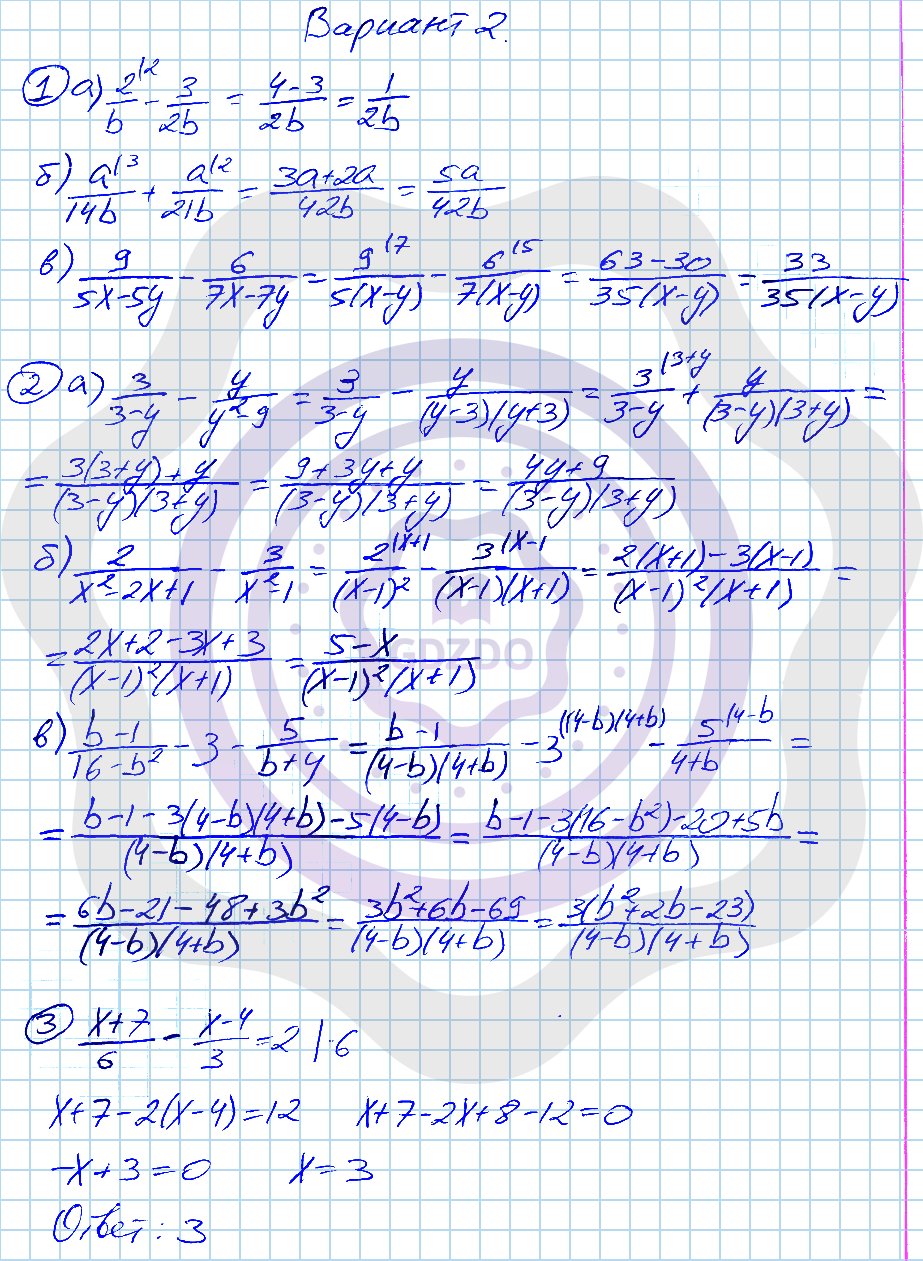 Вариант 2.
① а) 2^{|2}/b - 3/2b = (4-3)/2b = 1/2b
б) a^{|3}/14b + a^{|2}/21b = (3a+2a)/42b = 5a/42b
в) 9/(5x-5y) - 6/(7x-7y) = 9^{|7}/5(x-y) - 6^{|5}/7(x-y) = (63-30)/35(x-y) = 33/35(x-y)
② а) 3/(3-y) - y/(y²-9) = 3/(3-y) - y/(y-3)(y+3) = 3^{|3+y}/(3-y) + y/(3-y)(3+y) =
= (3(3+y)+y)/(3-y)(3+y) = (9+3y+y)/(3-y)(3+y) = (4y+9)/(3-y)(3+y)
б) 2/(x²-2x+1) - 3/(x²-1) = 2^{|x+1}/(x-1)² - 3^{|x-1}/(x-1)(x+1) = (2(x+1)-3(x-1))/(x-1)²(x+1) =
= (2x+2-3x+3)/(x-1)²(x+1) = (5-x)/(x-1)²(x+1)
GDZDO
в) (b-1)/(16-b²) - 3 - 5/(b+4) = (b-1)/(4-b)(4+b) - 3^{|(4-b)(4+b)} - 5^{|4-b}/(4+b) =
= (b-1-3(4-b)(4+b)-5(4-b))/(4-b)(4+b) = (b-1-3(16-b²)-20+5b)/(4-b)(4+b) =
= (6b-21-48+3b²)/(4-b)(4+b) = (3b²+6b-69)/(4-b)(4+b) = 3(b²+2b-23)/(4-b)(4+b)
③ (x+7)/6 - (x-4)/3 = 2 |·6
x+7-2(x-4)=12 x+7-2x+8-12=0
-x+3=0 x=3
Ответ: 3